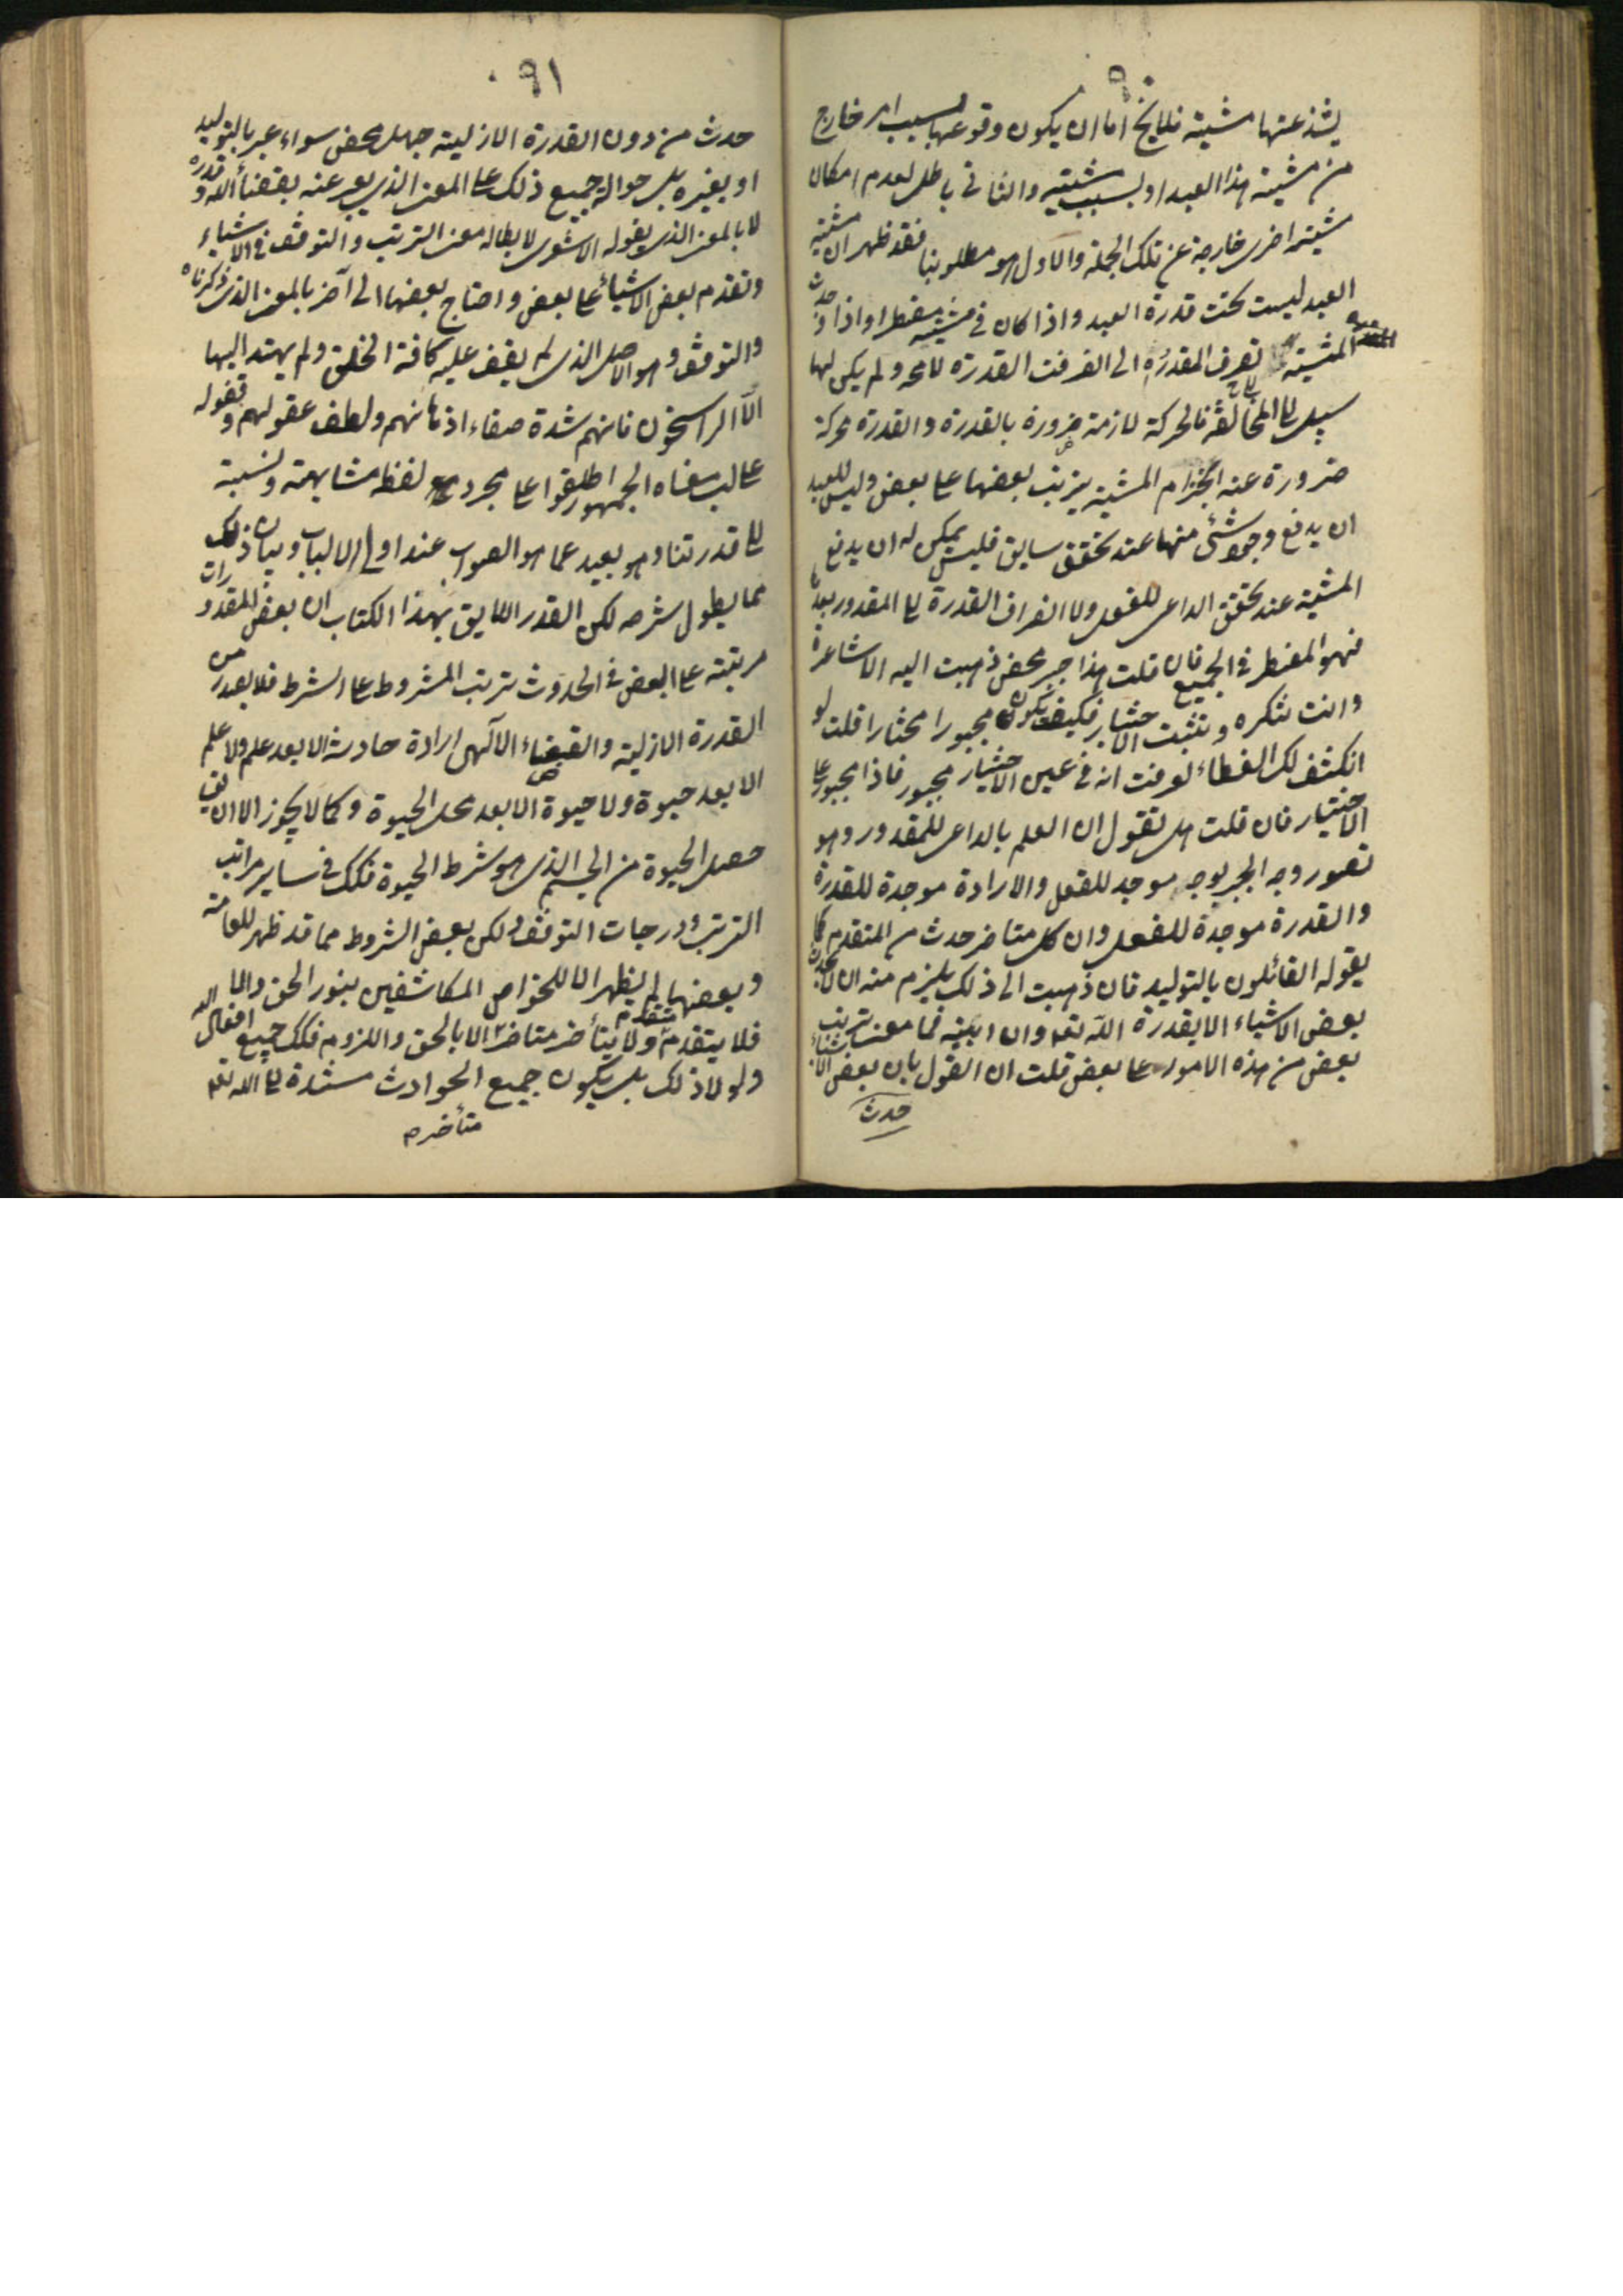 ٩٠
يشذ عنها مشية فلايخ اما ان يكون وقوعها بسبب امر خارج
من مشية هذا العبد او بسبب مشيته والثانى باطل لعدم امكان
مشية اخرى خارجة عن تلك الجملة والاول هو مطلوبنا فقد ظهر ان مشية
العبد ليست تحت قدرة العبد واذا كان فى مشيته مضطرا واذا وجدت
المشية تصرف القدرة الى انصرفت القدرة لا محه ولم يكن لها
سبيل الى المخالفة فالحركة لازمة ضرورة بالقدرة والقدرة محركة
ضرورة عند انجزام المشية يترتب بعضها على بعض وليس للعبد
ان يدفع وجود شئ منها عند تحقق سابق فليس يمكن له ان يدفع
المشية عند تحقق الداعى للفعل ولا انصراف القدرة الى المقدور بعدها
فهو المضطر فى الجميع فان قلت هذا جبر محض ذهبت اليه الاشاعرة
وانت تنكره وتثبت الاختيار فكيف يكون مجبورا مختارا قلت لو
انكشف لك الغطاء لعرفت انه فى عين الاختيار مجبور فاذا مجبور على
الاختيار فان قلت هل تقول ان العلم بالداعى للمقدور وهو
تصور وجه الخير يوجه موجد للفعل والارادة موجدة للقدرة
والقدرة موجدة للفعل وان كل متاخر حدث من المتقدم كما
يقوله القائلون بالتوليد فان ذهبت الى ذلك يلزم منه ان لا يحدث
بعض الاشياء الا بقدرة الله تعه وان ابيته فما معنى ترتب
بعض من هذه الامور على بعض قلت ان القول بان بعض الاشياء
حدث
٩١
حدث من دون القدرة الازلية جهل محض سواء عبر بالتوليد
او بغيره بل حوالة جميع ذلك على المعنى الذى يعبر عنه بقضاء الله وقدره
لا بالمعنى الذى يقوله الاشعرى لابطاله معنى الترتب والتوقف فى الاشياء
وتقدم بعض الاشياء على بعض واحتاج بعضها الى آخر بالمعنى الذى ذكرناه
والتوقف وهو الاصل الذى لم يقف عليه كافة الخلق ولم يهتد اليها
الا الراسخون فانهم شدة صفاء اذهانهم ولطف عقولهم وقفوا
على لب معناه الجمهور اطلقوا على مجرد لفظ مشابهة ونسبة
الى قدرتنا وهو بعيد عما هو الصواب عند اولى الالباب وبيان ذلك
مما يطول شرحه لكن القدر اللايق بهذا الكتاب ان بعض المقدورات
مرتبته على البعض فى الحدوث ترتب المشروط على الشرط فلا يصدر من
القدرة الازلية والقضاء الالهى ارادة حادثة الا بعد علم ولا علم
الا بعد حيوة ولا حيوة الا بعد محل الحيوة وكما لا يجوز الا ان
حصل الحيوة من الجسم الذى هو شرط الحيوة فكك فى ساير مراتب
الترتب ودرجات التوقف ولكن بعض الشروط مما قد ظهر للعامة
وبعضها لم يظهر الا للخواص المكاشفين بنور الحق والا
فلا يتقدم متقدم ولا يتأخر متاخر الا بالحق واللزوم فكك جميع افعال الله
ولولا ذلك بل يكون جميع الحوادث مستندة الى الله تعه
متأخره